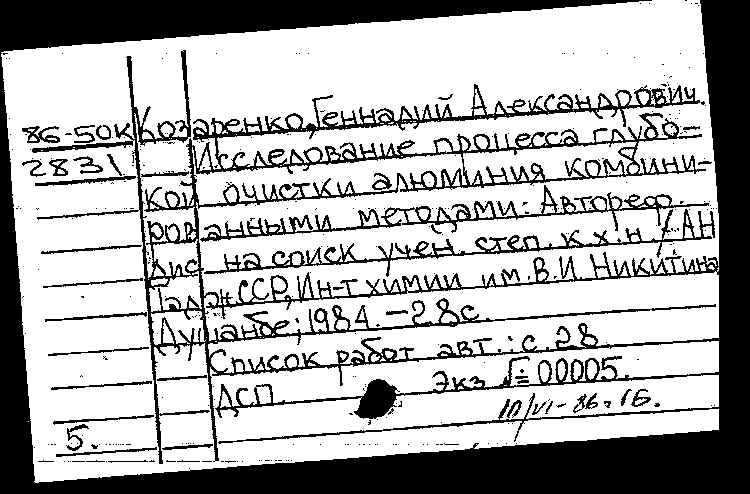 86-50к Козаренко, Геннадий Александрович.
2831 Исследование процесса глубо-
кой очистки алюминия комбини-
рованными методами: Автореф.
дис. на соиск. учен. степ. к.х.н. / АН
Тадж.ССР, Ин-т химии им. В.И. Никитина
Душанбе; 1984. - 28с.
Список работ авт.: с. 28
ДСП. Экз № 00005.
10/VI-86г. 16.
5.